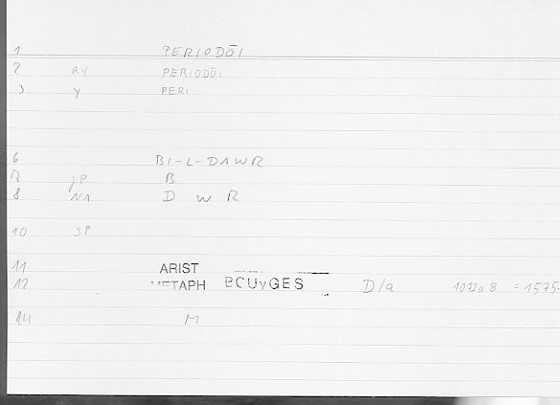 1 PERIODŌI
2 RY PERIODŌI
3 Y PERI
6 BI-L-DAWR
7 JP B
8 NA D W R
10 SP
11 ARIST
12 METAPH BOUYGES D/a 1072a8 =1575
14 M